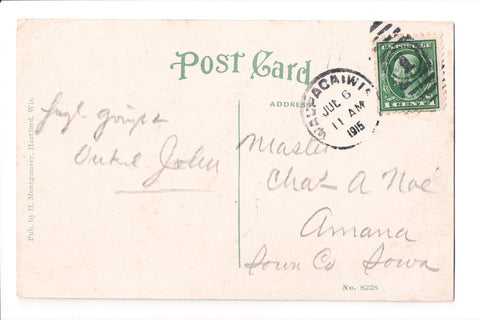 Post Card
ADDRESS
WAUPACA, WIS.
JUL 6
11 AM
1915
U.S. POSTAGE
1 CENT 1
Uncle John
Master
Chas A Noé
Amana
Iowa Co Iowa
Pub. by H. Montgomery, Hartford, Wis.
No. 8228